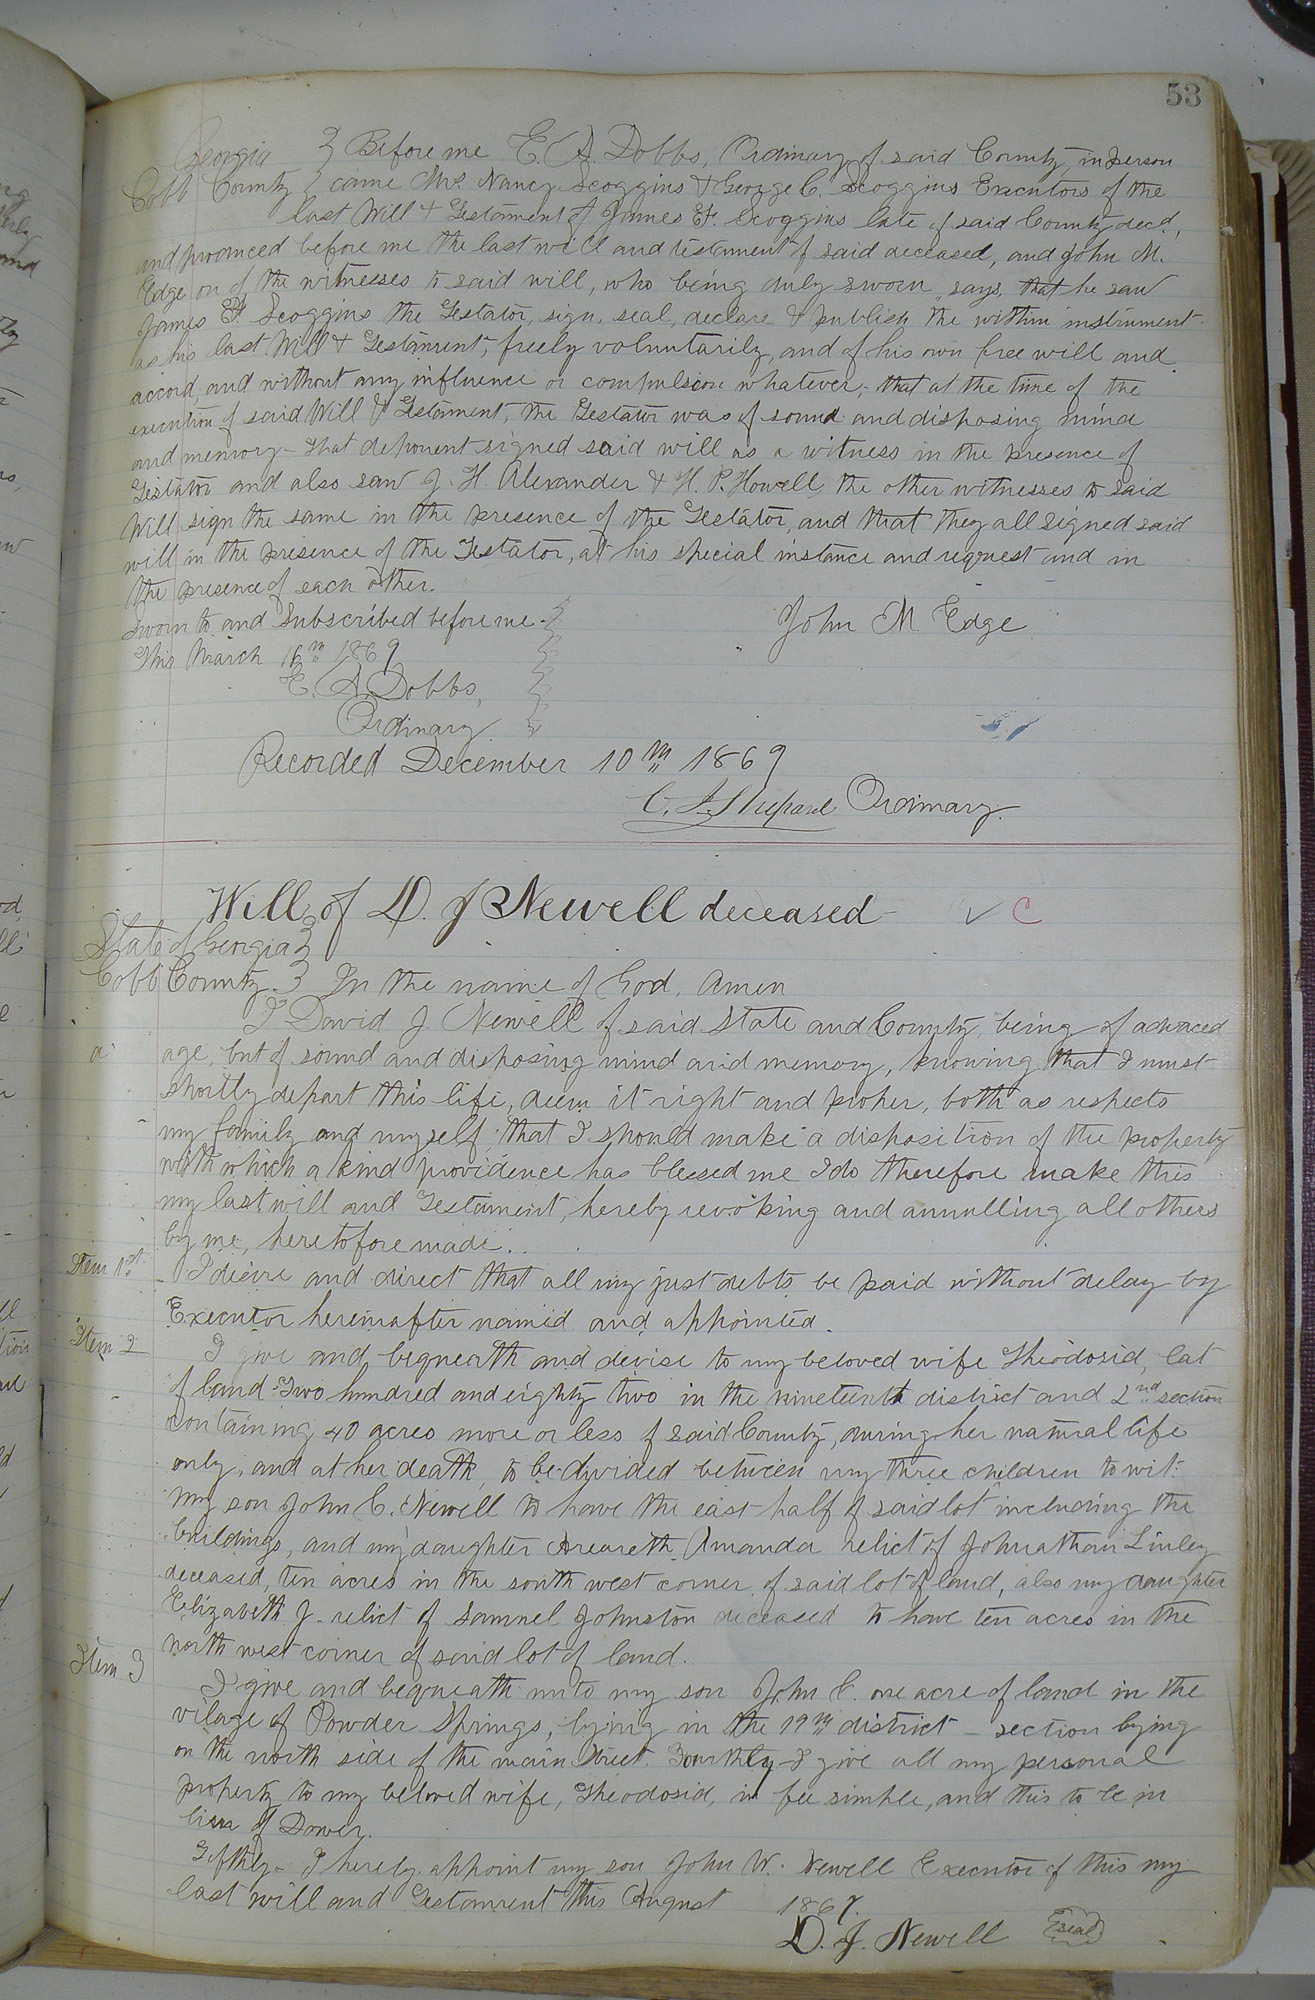 53
Georgia } Before me E. A. Dobbs, Ordinary of said County in person
Cobb County } came Mrs Nancy Scoggins & George C. Scoggins Executors of the
last Will & Testament of James F. Scoggins late of said County decd,
and produced before me the last will and testament of said deceased, and John M.
Edge on of the witnesses to said will, who being duly sworn says, that he saw
James F. Scoggins the Testator, sign, seal, declare & publish the within instrument
as his last Will & Testament, freely voluntarily, and of his own free will and
accord, and without any influence or compulsion whatever, that at the time of the
execution of said Will & Testament, the Testator was of sound and disposing mind
and memory - that deponent signed said will as a witness in the presence of
Testator and also saw J. H. Alexander & H. P. Howell the other witnesses to said
Will sign the same in the presence of the Testator, and that they all signed said
will in the presence of the Testator, at his special instance and request and in
the presence of each other.
Sworn to and Subscribed before me } John M. Edge
This March 16th 1869
E. A. Dobbs,
Ordinary
Recorded December 10th 1869
Ordinary.
Will of D. J Newell deceased ✓ C
State of Georgia }
Cobb County. } In the name of God, Amen
I David J Newell of said State and County, being of advaced
age, but of sound and disposing mind and memory, knowing that I must
shortly depart this life, deem it right and proper, both as respects
my family and myself that I should make a disposition of the property
with which a kind providence has blessed me I do therefore make this
my last will and Testament, hereby revoking and annulling all others
by me, heretofore made.
Item 1st. I desire and direct that all my just debts be paid without delay by
Executor hereinafter named and appointed.
Item 2 I give and bequeath and devise to my beloved wife Theodosid, lat
of land Two hundred and eighty two in the nineteenth district and 2nd section
containing 40 acres more or less of said County, during her natural life
only, and at her death, to be divided between my three children to wit:
my son John C. Newell to have the east half of said lot including the
buildings, and my daughter Amanda relict of Johnathan Linley
deceased, ten acres in the south west corner of said lot of land, also my daughter
Elizabeth J. relict of Samuel Johnston deceased to have ten acres in the
north west corner of said lot of land.
Item 3 I give and bequeath unto my son John C. one acre of land in the
vilage of Powder Springs, lying in the 19th district - section lying
on the north side of the main Street. Fourthly I give all my personal
property to my beloved wife, Theodosid, in fee simple, and this to be in
lieu of Dower.
Fifthly - I hereby appoint my son John W. Newell Executor of this my
last will and Testament this August 1867.
D. J. Newell seal